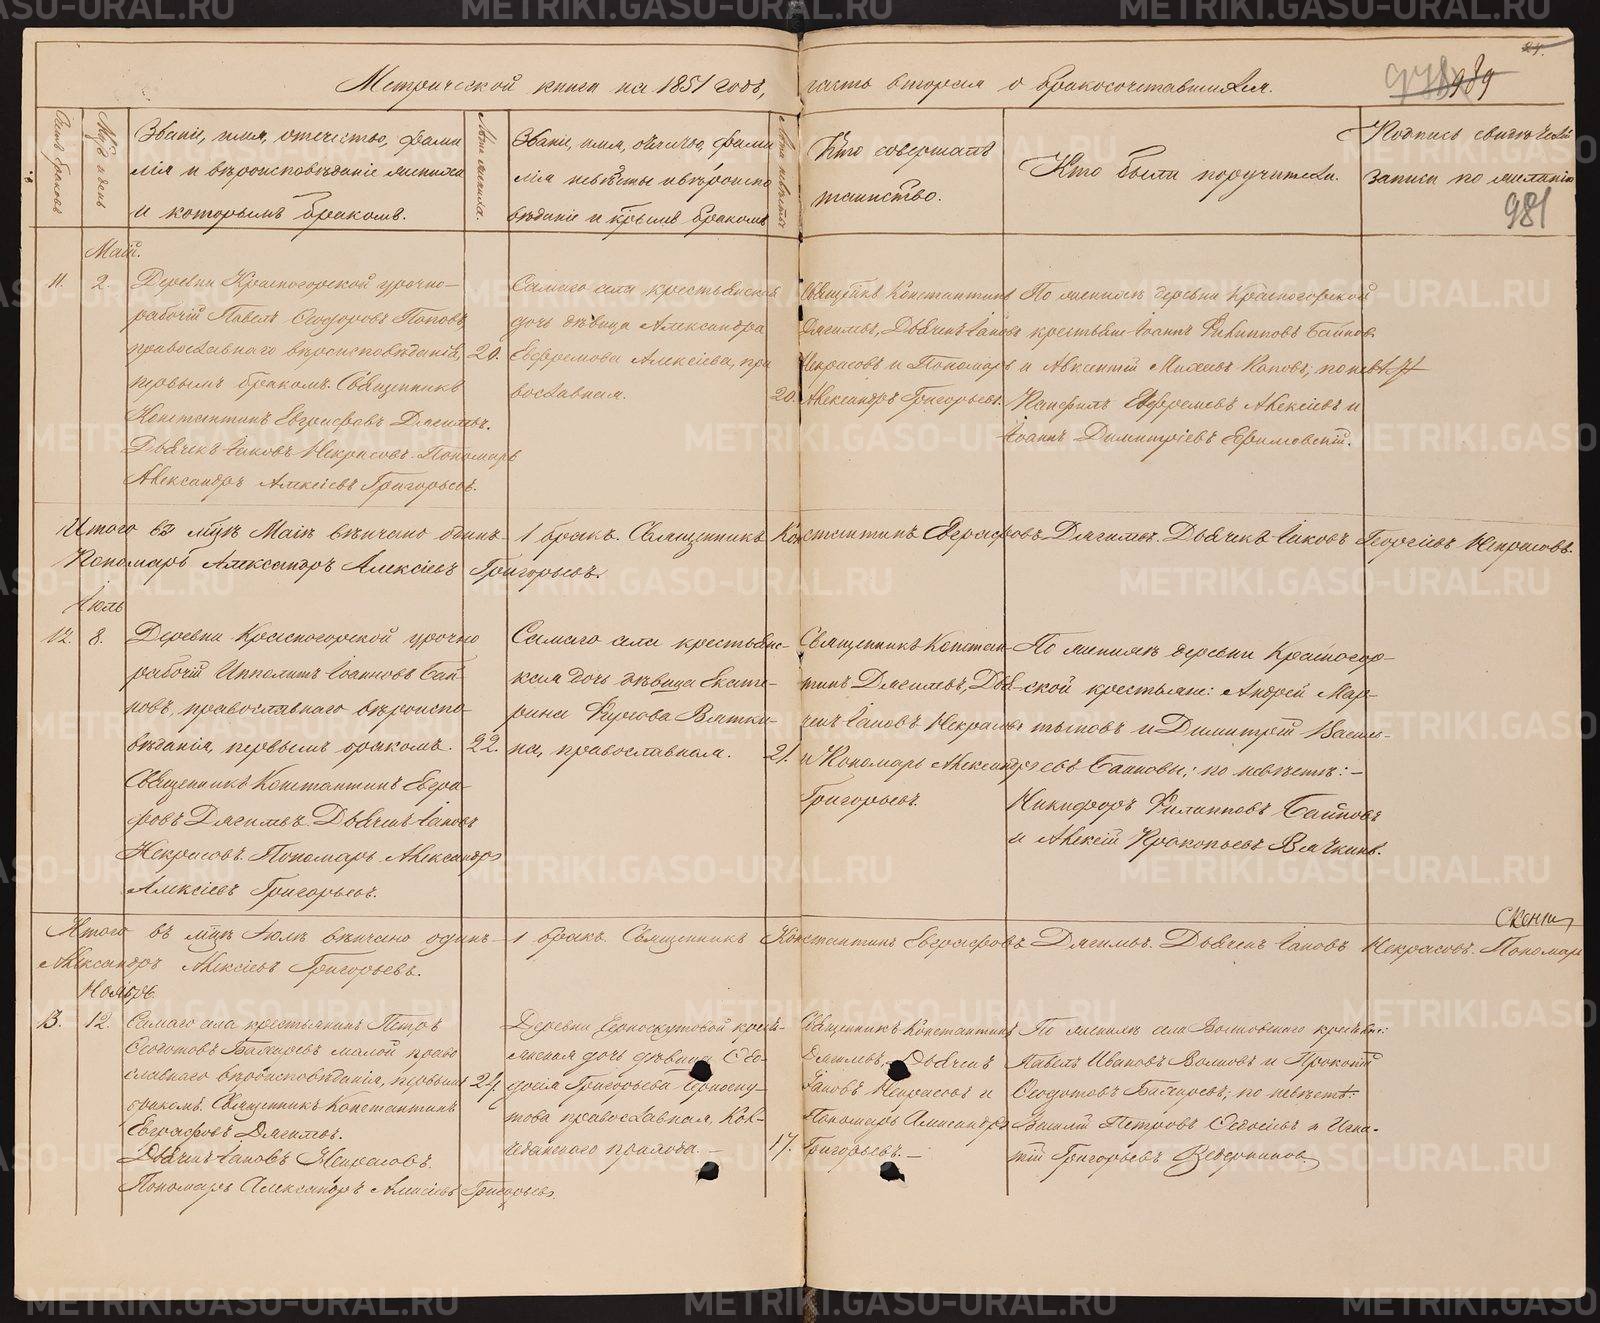 Метрической книги на 1851 годъ, часть вторая о бракосочетавшихся.
24.
989
981
Счетъ браковъ
Мѣс. и день
Званіе, имя, отечество, фами
лія и вѣроисповѣданіе жениха
и которымъ бракомъ.
Лѣта жениха.
Званіе, имя, отечество, фами
лія невѣсты и вѣроиспо
вѣданіе и крымъ бракомъ
Лѣта невѣсты
Кто совершалъ
таинство.
Кто были поручители.
Подпись свидѣтелей
записи по желанію
Маій.
11. 2.
Деревни Красногорской урочно-
рабочій Павелъ Ѳеодоровъ Поповъ,
православнаго вѣроисповѣданія,
первымъ бракомъ. Священникъ
Константинъ Евграфовъ Дягилевъ.
Дьячекъ Іаковъ Некрасовъ. Пономарь
Александръ Алексіевъ Григорьевъ.
20.
Самаго села крестьянская
дочь дѣвица Александра
Евфремова Алексіева, пра
вославная.
20.
Священникъ Константинъ
Дягилевъ, Дьячекъ Іаковъ
Некрасовъ и Пономарь
Александръ Григорьевъ.
По женихѣ деревни Красногорской
крестьяне Іоаннъ Филипповъ Баиновъ
и Авксентій Михеевъ Поповъ; по невѣстѣ
Панфилъ Евфремовъ Алексіевъ и
Іоаннъ Димитріевъ Ефимовскій.
Итого въ мцѣ Маіѣ вѣнчано одинъ - 1 бракъ. Священникъ Константинъ Евграфовъ Дягилевъ. Дьячекъ Іаковъ Георгіевъ Некрасовъ.
Пономарь Александръ Алексіевъ Григорьевъ.
Іюль
12. 8.
Деревни Красногорской урочно
рабочій Ипполитъ Іоанновъ Баи
новъ, православнаго вѣроиспо-
вѣданія, первымъ бракомъ.
Священникъ Константинъ Евгра-
фовъ Дягилевъ. Дьячекъ Іаковъ
Некрасовъ. Пономарь Александръ
Алексіевъ Григорьевъ.
22.
Самаго села крестьянс-
кая дочь дѣвица Екате-
рина Вятки-
на, православная.
21.
Священникъ Констан-
тинъ Дягилевъ, Дья-
чекъ Іаковъ Некрасовъ
и Пономарь Александръ
Григорьевъ.
По женихѣ деревни Красногор-
ской крестьяне: Андрей Мар-
тыновъ и Димитрій Васи-
евъ Баиновы; по невѣстѣ: -
Никифоръ Филипповъ Баиновъ
и Алексій Прокопьевъ Вяткинъ.
Итого въ мцѣ Іюлѣ вѣнчано одинъ - 1 бракъ. Священникъ Константинъ Евграфовъ Дягилевъ. Дьячекъ Іаковъ Некрасовъ. Пономарь
Александръ Алексіевъ Григорьевъ.
Ноябрь.
13. 12.
Самаго села крестьянинъ Петръ
Ѳеодотовъ малой право
славнаго вѣроисповѣданія, первымъ
бракомъ. Священникъ Константинъ
Евграфовъ Дягилевъ.
Дьячекъ Іаковъ Некрасовъ.
Пономарь Александръ Алексіевъ Григорьевъ.
24.
Деревни Черноскутовой кресть-
янская дочь дѣвица Ѳео-
досія Григорьева Черноску-
това православная, Кол-
чеданскаго прихода. -
17.
Священникъ Константинъ
Дягилевъ, Дьячекъ
Іаковъ Некрасовъ и
Пономарь Александръ
Григорьевъ. -
По женихѣ села Волковскаго крестьяне:
Павелъ Ивановъ Волковъ и Прокопій
Ѳеодотовъ; по невѣстѣ:
Василій Петровъ Ѳедосіевъ и Игна-
тій Григорьевъ Ведерниковъ.
METRIKI.GASO-URAL.RU